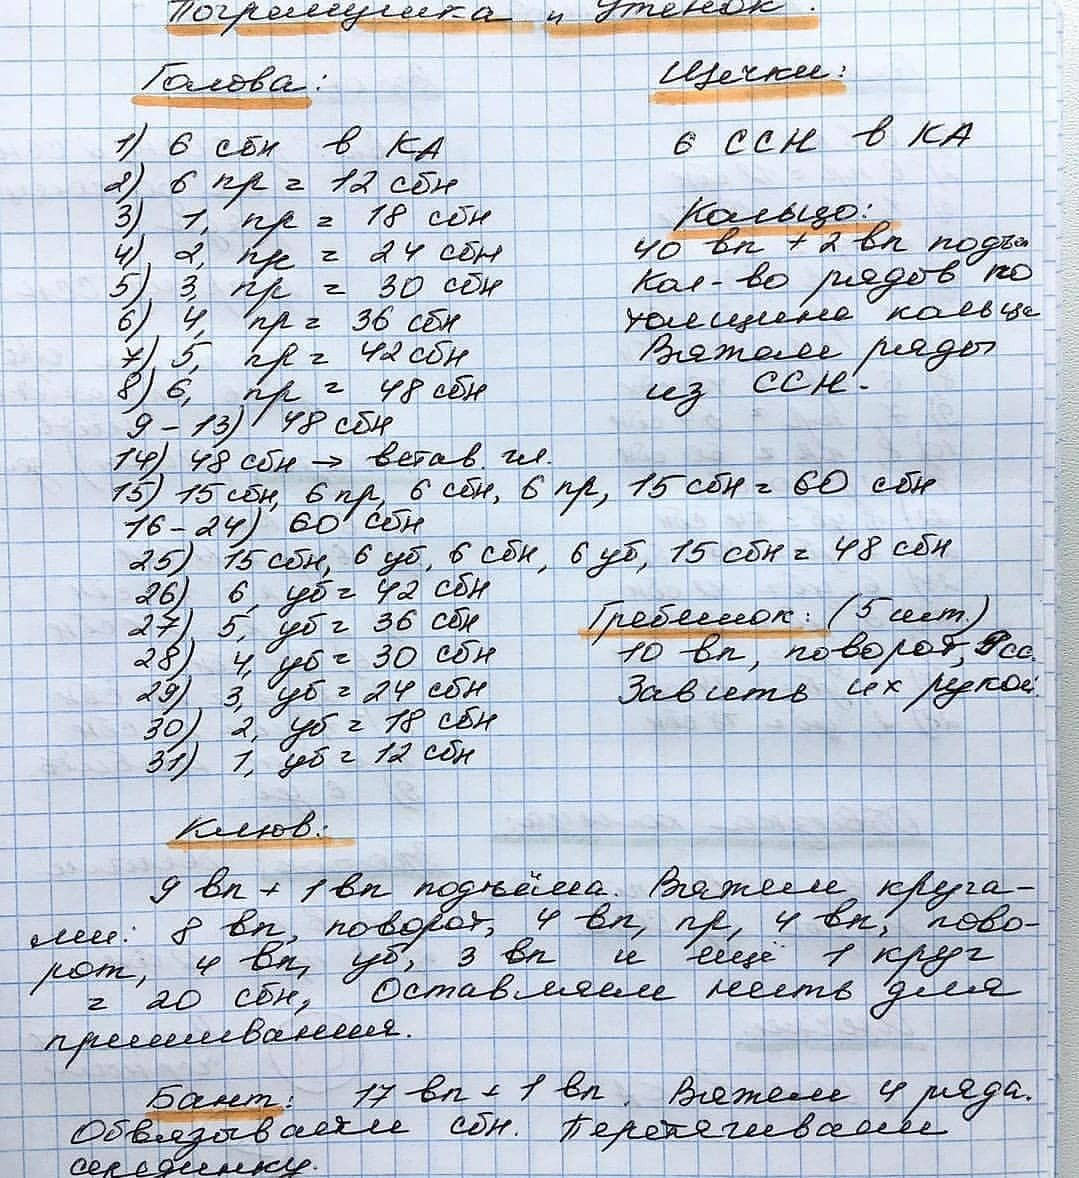 Погремушка и Утёнок.
Голова:
1) 6 сбн в КА
2) 6 пр = 12 сбн
3) 1, пр = 18 сбн
4) 2, пр = 24 сбн
5) 3, пр = 30 сбн
6) 4, пр = 36 сбн
7) 5, пр = 42 сбн
8) 6, пр = 48 сбн
9-13) 48 сбн
14) 48 сбн → встав. гл.
15) 15 сбн, 6 пр, 6 сбн, 6 пр, 15 сбн = 60 сбн
16-24) 60 сбн
25) 15 сбн, 6 уб, 6 сбн, 6 уб, 15 сбн = 48 сбн
26) 6, уб = 42 сбн
27) 5, уб = 36 сбн
28) 4, уб = 30 сбн
29) 3, уб = 24 сбн
30) 2, уб = 18 сбн
31) 1, уб = 12 сбн
Щечки:
6 ССН в КА
Кольцо:
40 вп + 2 вп подъ
Кол-во рядов по
толщине кольца
Вяжем ряды
из ССН.
Гребешок: (5 шт.)
10 вп, поворот, 9 сс.
Завить их рукой.
Клюв:
9 вп + 1 вп подъёма. Вяжем круга-
ми: 8 вп, поворот, 4 вп, пр, 4 вп, пово-
рот, 4 вп, уб, 3 вп и ещё 1 круг
= 20 сбн, Оставляем нить для
пришивания.
Бант: 17 вп + 1 вп. Вяжем 4 ряда.
Обвязываем сбн. Перетягиваем
серединку.